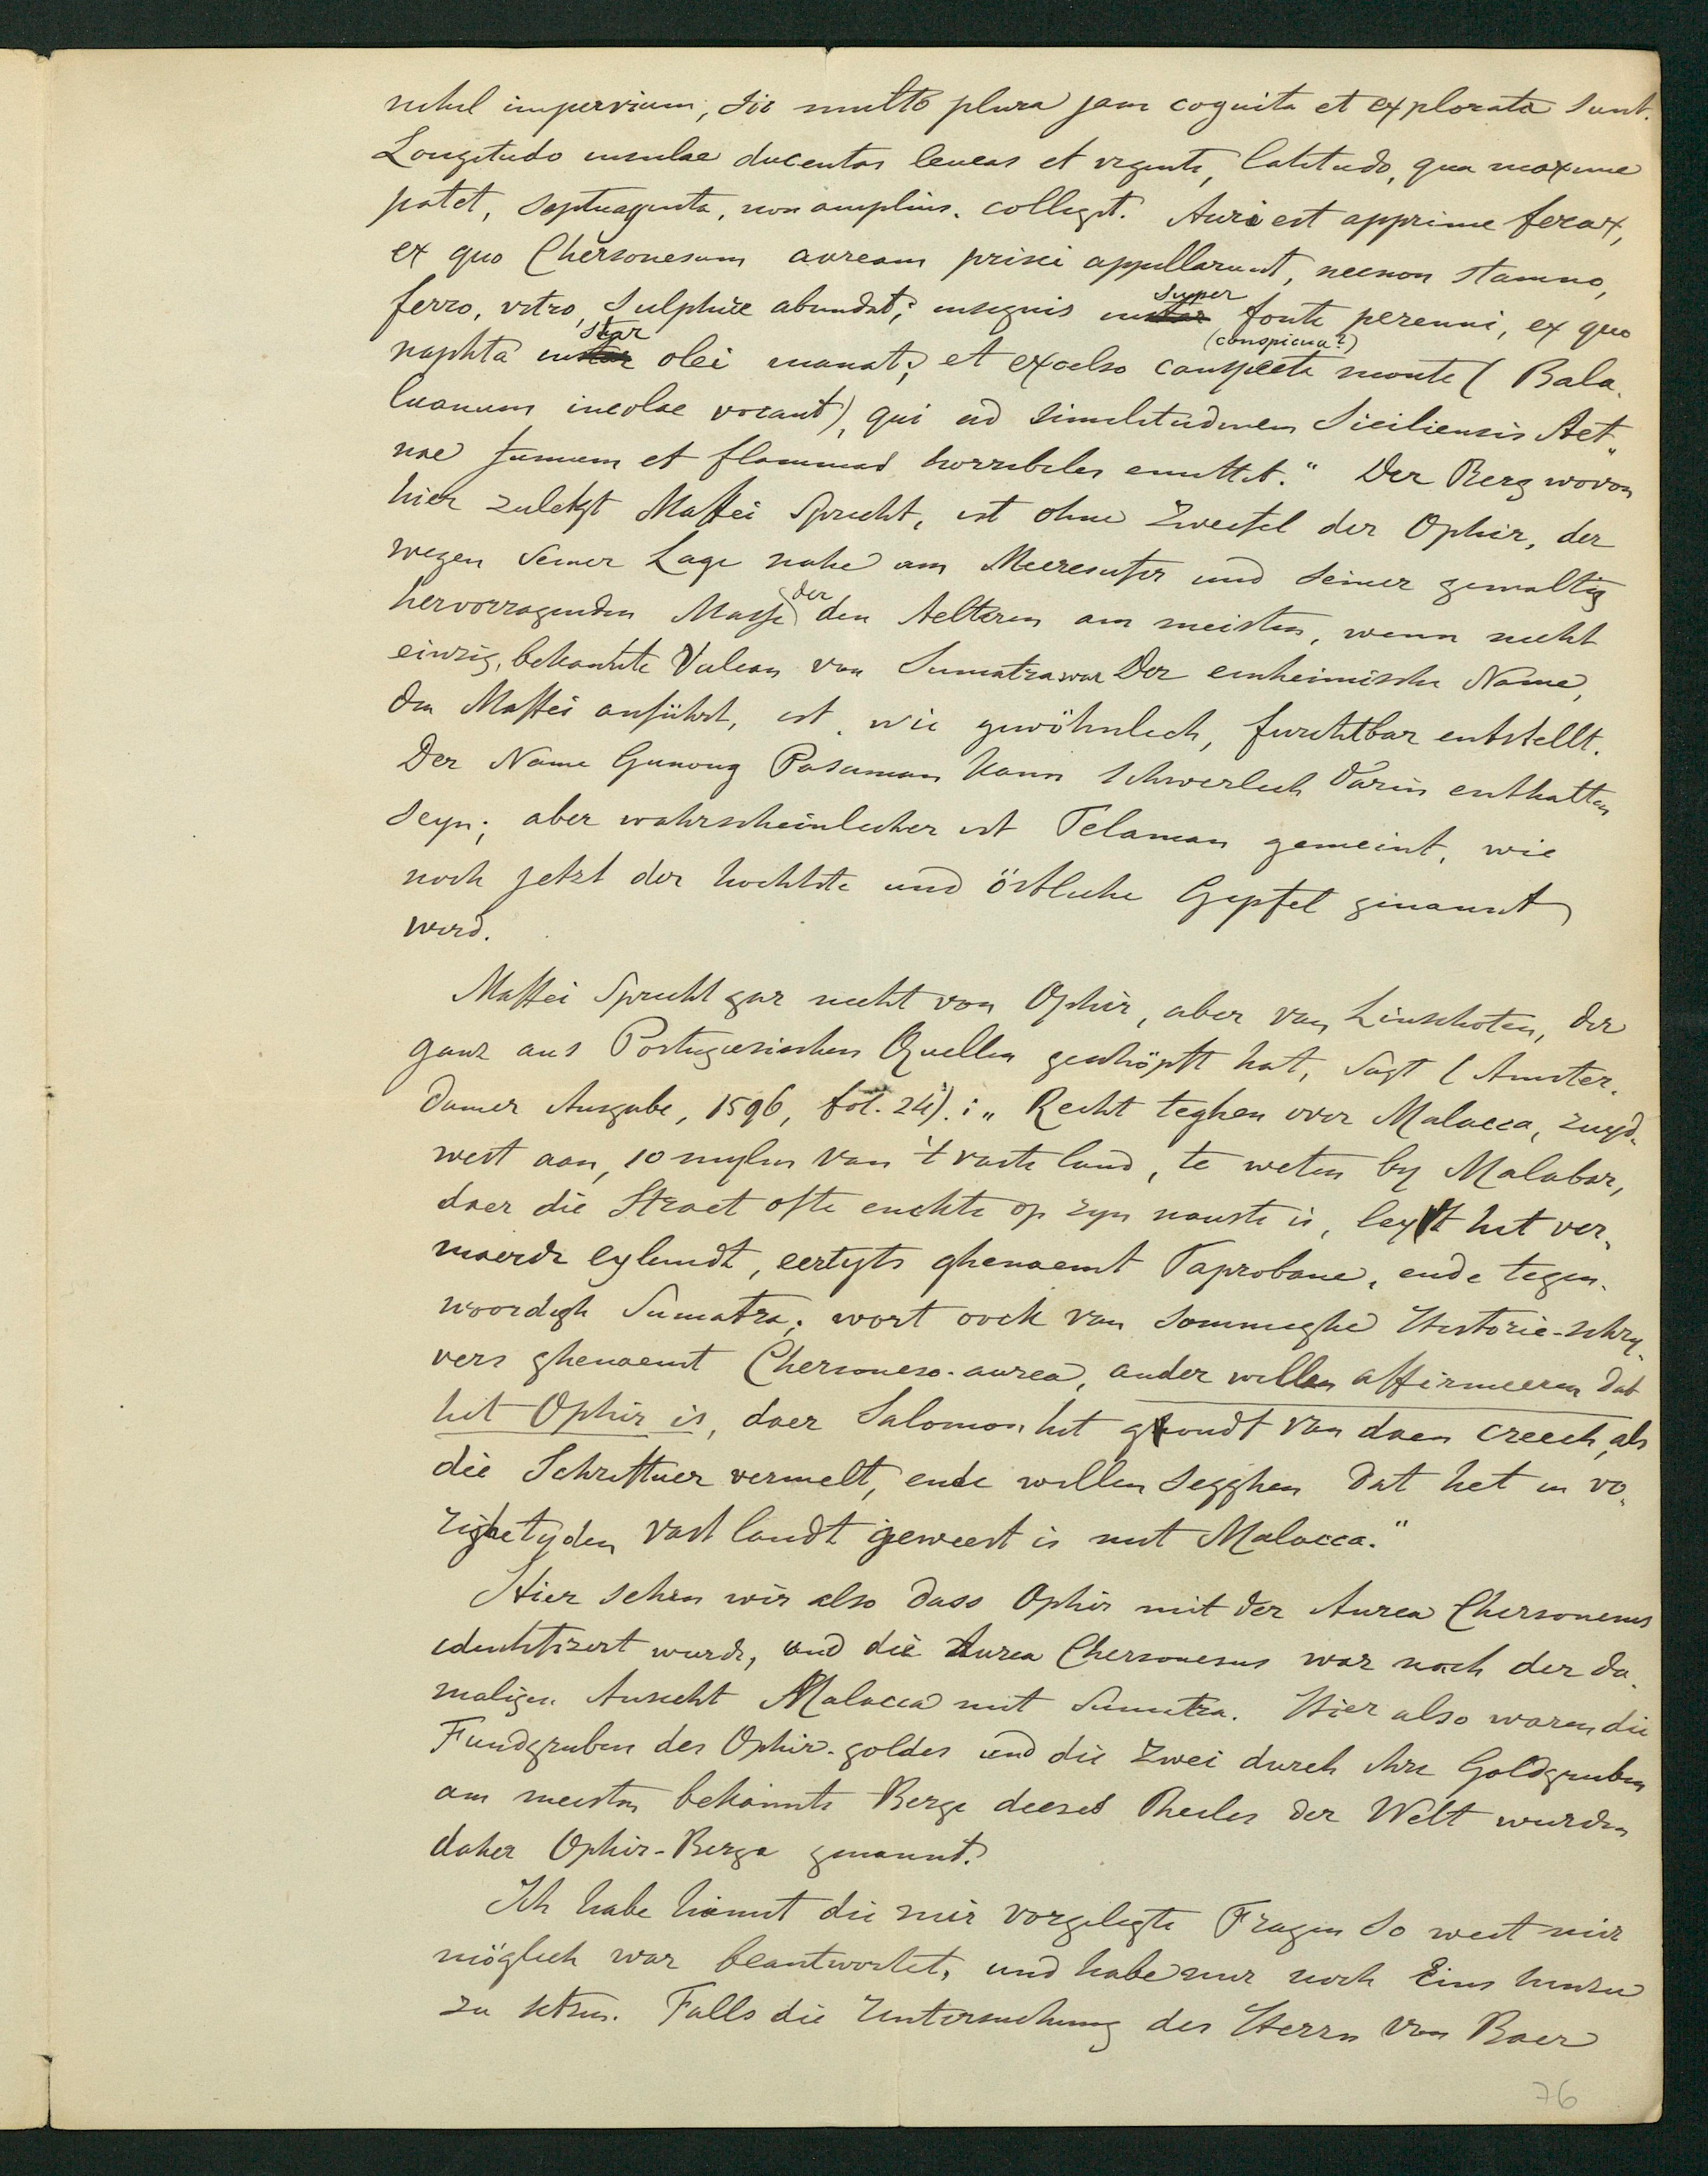 nihil impervium, sic multo plura jam cognita et explorata sunt.
Longitudo insulae ducentas leucas et viginti, latitudo, qua maxime
patet, septuaginta, non amplius, colligit. Auri est apprime ferax,
ex quo Chersonesum auream prisci appellarunt, necnon stamno,
ferro, vitro, sulphure abundat; insignis super fonte perenni, ex quo
naphta instar olei manat; et excelso conspecta (conspicua?) monte (Bala-
luanum incolae vocant), qui ad similitudinem Siciliensis Aet-
nae fumum et flammas horribiles emittit." Der Berg wovon
hier zuletzt Maffei spricht, ist ohne Zweifel der Ophir, der
wegen seiner Lage nahe am Meeresufer und seiner gewaltig
hervorragenden Masse der den Aelteren am meisten, wenn nicht
einzig, bekannte Vulcan von Sumatra war Der einheimische Name,
den Maffei anführt, ist, wie gewöhnlich, furchtbar entstellt.
Der Name Gunong Pasaman kann schwerlich darin enthalten
seyn; aber wahrscheinlicher ist Telaman gemeint, wie
noch jetzt der hochste und östliche Gipfel genannt
wird.
Maffei spricht gar nicht von Ophir, aber van Linschoten, der
ganz aus Portugiesischen Quellen geschöpft hat, sagt (Amster-
damer Ausgabe, 1596, fol. 24): „Recht teghen over Malacca, zuyd-
west aan, 10 mylen van 't vaste land, te weten by Malabar,
daer die Straet ofte enchte op zyn nauste is, leyt het ver-
maerde eylandt, eertyts ghenaemt Taprobane, ende tegen-
woordigh Sumatra; wort oock van sommighe Historie-schry-
vers ghenaemt Chersoneso-aurea, ander willen affirmeeren dat
het Ophir is, daer Salomon het goudt van daen creech, als
die Schriftuer vermelt, ende willen segghen dat het in vo-
righe tyden vast landt geweest is met Malacca."
Hier sehen wir also dass Ophir mit der Aurea Chersonesus
identifizert wurde, und die Aurea Chersonesus war nach der da-
maligen Ansicht Malacca mit Sumatra. Hier also waren die
Fundgruben des Ophir-goldes und die zwei durch ihre Goldgruben
am meisten bekannte Berge dieses Theiles der Welt wurden
daher Ophir-Berge genannt.
Ich habe hiemit die mir vorgelegte Fragen so weit mir
möglich war beantwortet, und habe nur noch Eins hinzu
zu setzen. Falls die Untersuchung des Herrn von Baer
76